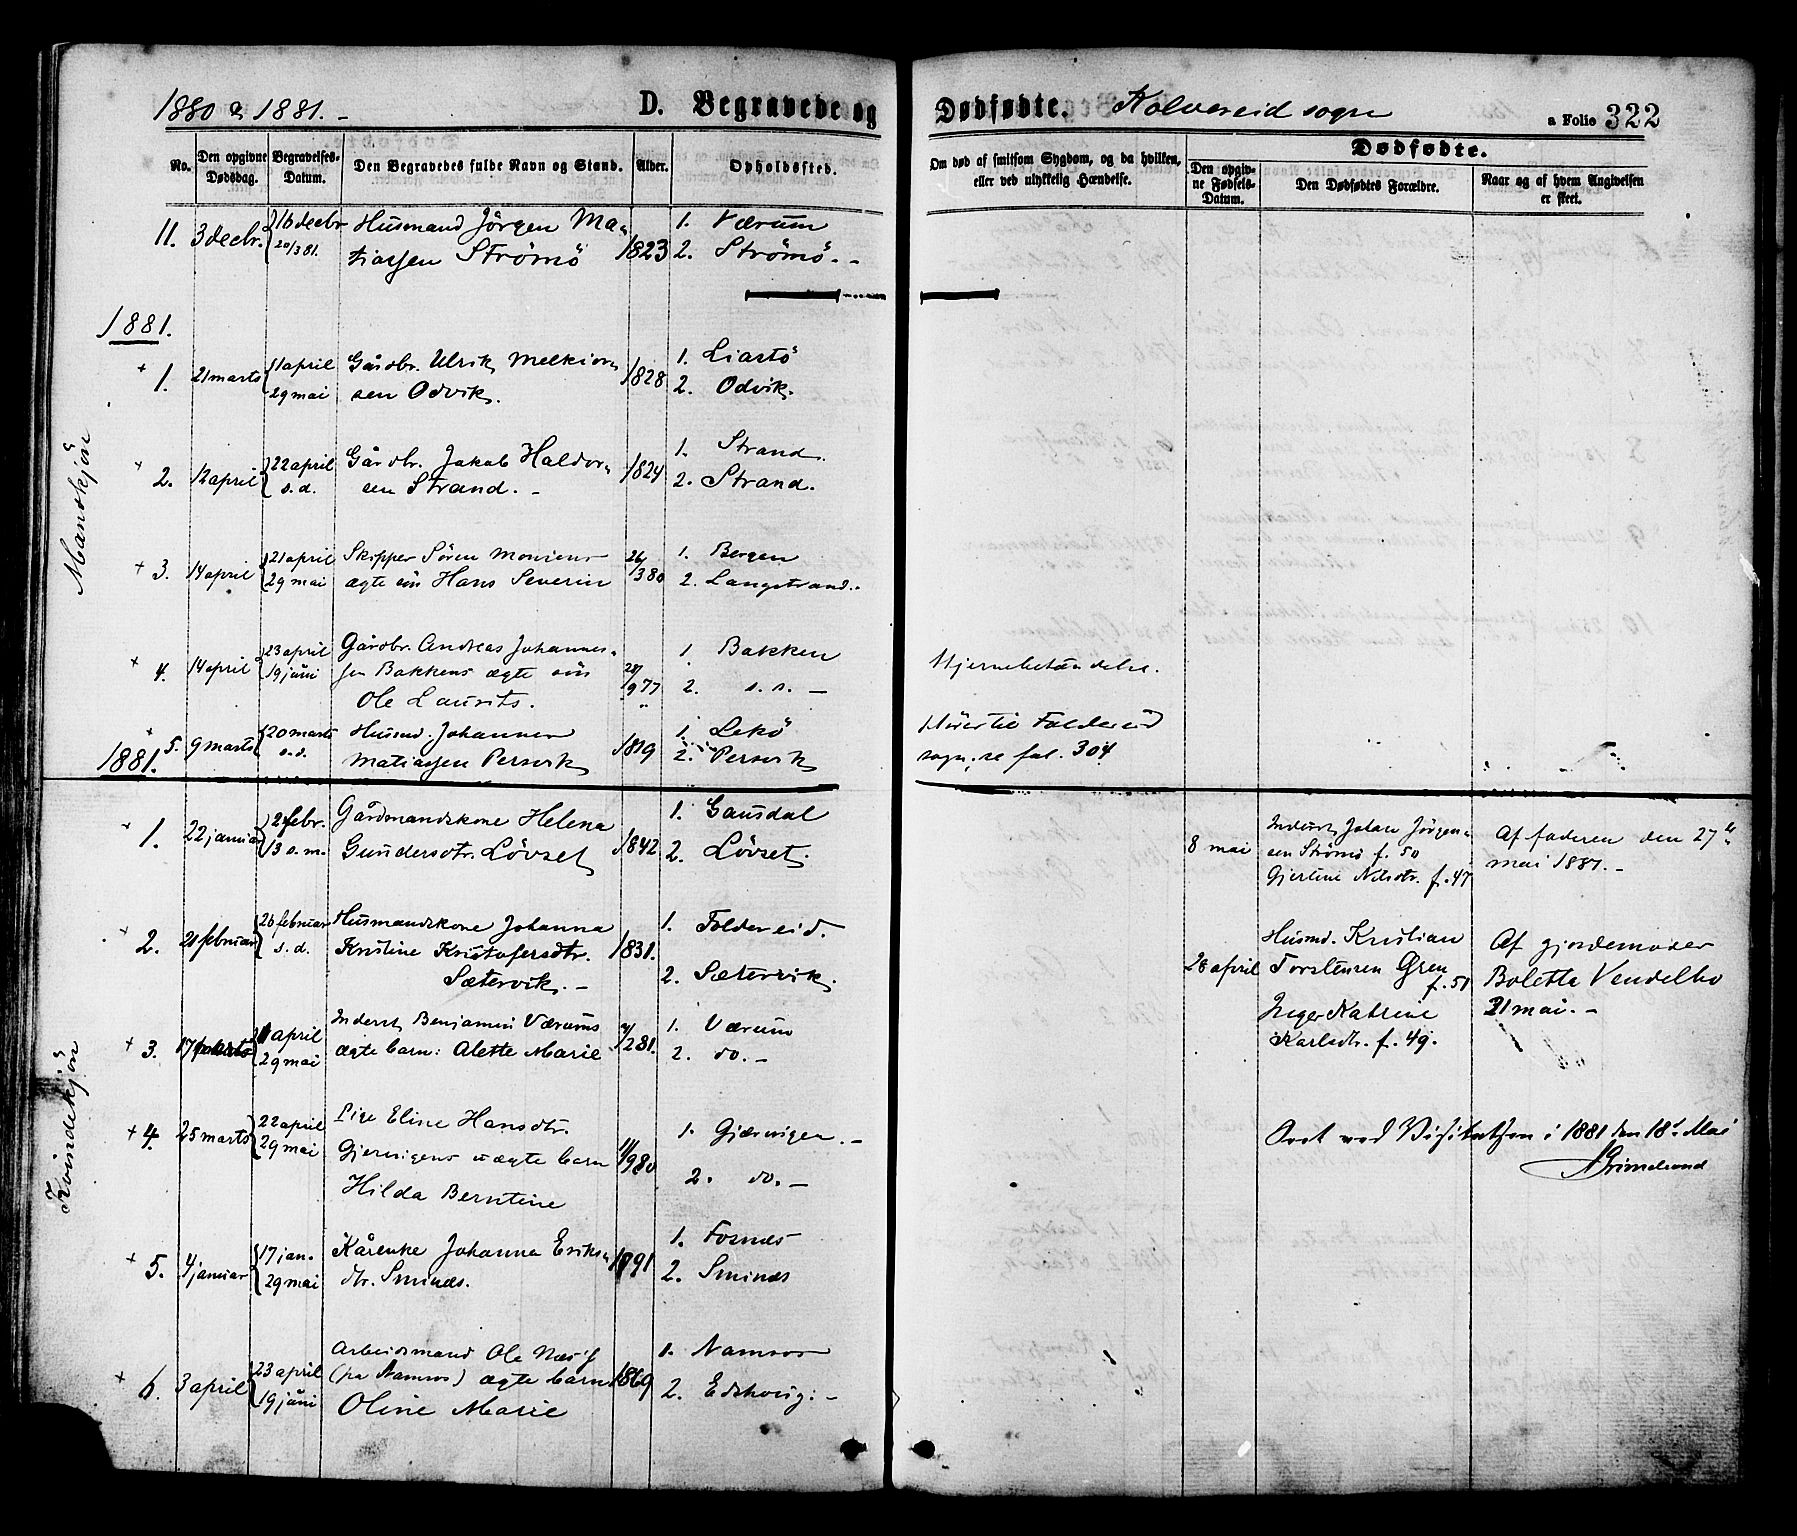 1880 & 1881. -
D. Begravede og Dødfødte.
Kolvereid sogn
a Folio 322
No.
Den opgivne Dødsdag.
Begravelses-Datum.
Den Begravedes fulde Navn og Stand.
Alder.
Opholdssted.
Om død af smitsom Sygdom, og da hvilken,
eller ved ulykkelig Hændelse.
Dødfødte.
Den opgivne Fødsels-Datum.
Den Dødfødtes Forældre.
Naar og af hvem Angivelsen er skeet.
11. 3 decbr. 16 decbr Husmand Jörgen Ma- 1823 1. Værum
20/3 81. tiassen Strömö 2. Strömö. -
1881.
Mandskjön
+ 1. 21 marts 11 april Gårdbr. Ulrik Melkior- 1828 1. Liastö
29 mai sen Odvik. 2. Odvik.
+ 2. 12 april 22 april Gårdbr. Jakob Haldor- 1824 1. Strand.
s. d. sen Strand. - 2. Strand.
+ 3. 14 april 21 april Skipper Sören Monsens 26/3 80 1. Bergen
29 mai ægte sön Hans Severin 2. Langstrand.
+ 4. 14 april 23 april Gårdbr. Andreas Johannes- 1. Bakken Hjernebetændelse.
19 jüni sen Bakkens ægte sön /9 77 2. s. s. -
Ole Laurits.
+ 5. 9 marts 20 marts Husmd. Johannes 1819 1. Lekö Hörer til Foldereid
s. d. Matiassen Persvik 2. Persvik sogn, se fol. 304
1881.
Kvindekjön
+ 1. 22 januar 2 febr. Gårdmandskone Helena 1842 1. Gausdal
13 s. m. Gundersdtr. Lövset 2. Lövset.
8 mai Inderst Johan Jörgen-
sen Strömö f. 50
Gjertine Nilsdtr. f. 47
Af faderen den 27de
mai 1881. -
+ 2. 21 februar 26 februar Husmandskone Johanna 1831. 1. Foldereid.
s. d. Kristine Kristofersdtr.
Sætervik. - 2. Sætervik.
28 april Husmd. Kristian
Torstensen Gren
f. 51
Inger Katrine
Karlsdtr. f. 49.
Af gjordemoder
Boletta Vendelbo
21 mai. -
+ 3. 17 marts 11 april Inderst Benjamin Værums /2 81. 1. Værum
29 mai ægte barn: Alette Marie 2. do. -
+ 4. 25 marts 22 april Pige Eline Hansdtr. 1. Gjærvigen. -
29 mai Gjervigens uægte barn 11/9 80 2. do. -
Hilda Berntine
Seet ved Visitatsen i 1881 den 18. Mai
Grimelund
+ 5. 4 januar 17 jan. Kårenke Johanna Eriks- 1. Fosnes
29 mai dtr. Smines. 2. Smines
+ 6. 3 april 23 april Arbeidsmand Ole Næs's 1869 1. Namsos
19 jüni (fra Namsos) ægte barn 2. Edshaug: -
Oline Marie